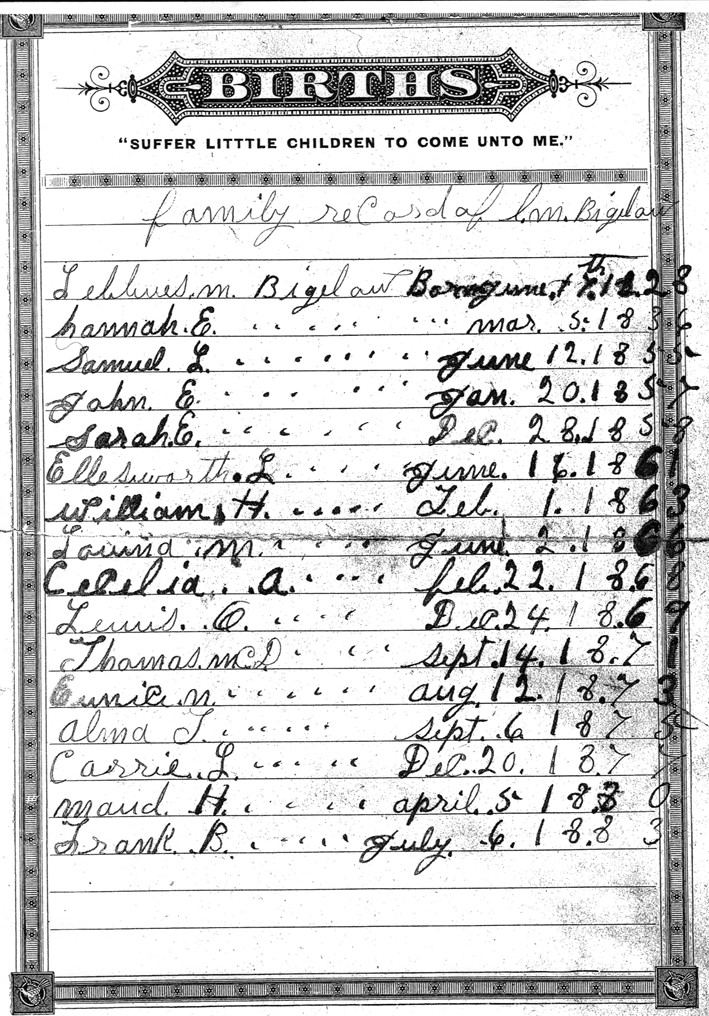 BIRTHS
"SUFFER LITTTLE CHILDREN TO COME UNTO ME."
family record of l.m. Bigelow
m. Bigelow Born June. 17th. 1828
hannah. E. " " " " mar. 5. 1836
Samuel. L. " " " " June 12. 1855
John. E. " " " " Jan. 20. 1857
Sarah. E. " " " " Dec. 28. 1858
Ellesworth. L. " " " " June. 16. 1861
William. H. " " " " Feb. 1. 1863
Louina. m. " " " " June. 2. 1866
Cecelia. A. " " " " feb. 22. 1868
Lewis. O. " " " " Dec. 24. 1869
Thomas. mcD " " " " sept. 14. 1871
Eunice. n. " " " " aug. 12. 1873
alma T. " " " " sept. 6 1875
Carrie. L. " " " " Dec. 20. 1877
maud. H. " " " " april. 5 1880
Frank. B. " " " " July. 6. 1883